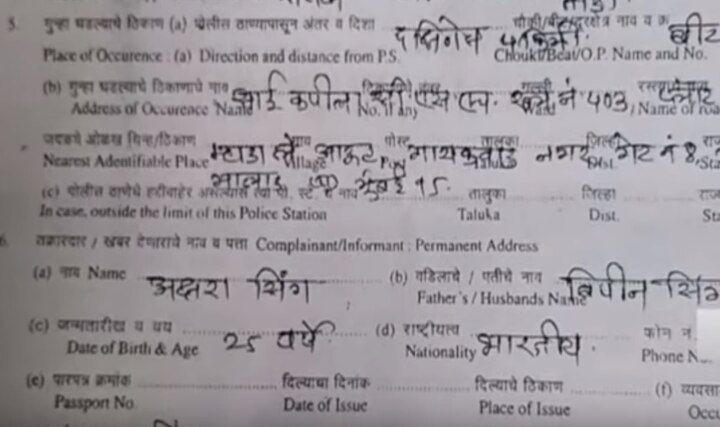 5. गुन्हा घडल्याचे ठिकाण (a) पोलीस ठाण्यापासून अंतर व दिशा चौकी/बीट/दूरक्षेत्र नाव व क्र
Place of Occurence : (a) Direction and distance from P.S. Chouki/Beat/O.P. Name and No.
(b) गुन्हा घडल्याचे ठिकाणाचे नाव साई कपीला सी एच एच. रूम नं 403,
Address of Occurence Name No. if any Name of road
जवळचे ओळख चिन्ह/ठिकाण म्हाडा ले आऊट गायकवाड नगर गेट नं 8,
Nearest Adentifiable Place Village Post Dist.
मालाड मुंबई 95.
(c) पोलीस ठाणेचे हद्दीबाहेर असल्यास त्या पो. स्टे. चे नाव तालुका जिल्हा
In case, outside the limit of this Police Station Taluka Dist.
6. तक्रारदार / खबर देणाराचे नाव व पत्ता Complainant/Informant : Permanent Address
(a) नाव Name अक्षरा सिंग (b) वडिलाचे / पतीचे नाव बिपीन सिंग
Father's / Husbands Name
(c) जन्मतारीख व वय 25 वर्षे (d) राष्ट्रीयत्व भारतीय. फोन नं.
Date of Birth & Age Nationality Phone N
(e) पारपत्र क्रमांक दिल्याचा दिनांक दिल्याचे ठिकाण (f) व्यवसा
Passport No. Date of Issue Place of Issue Occu